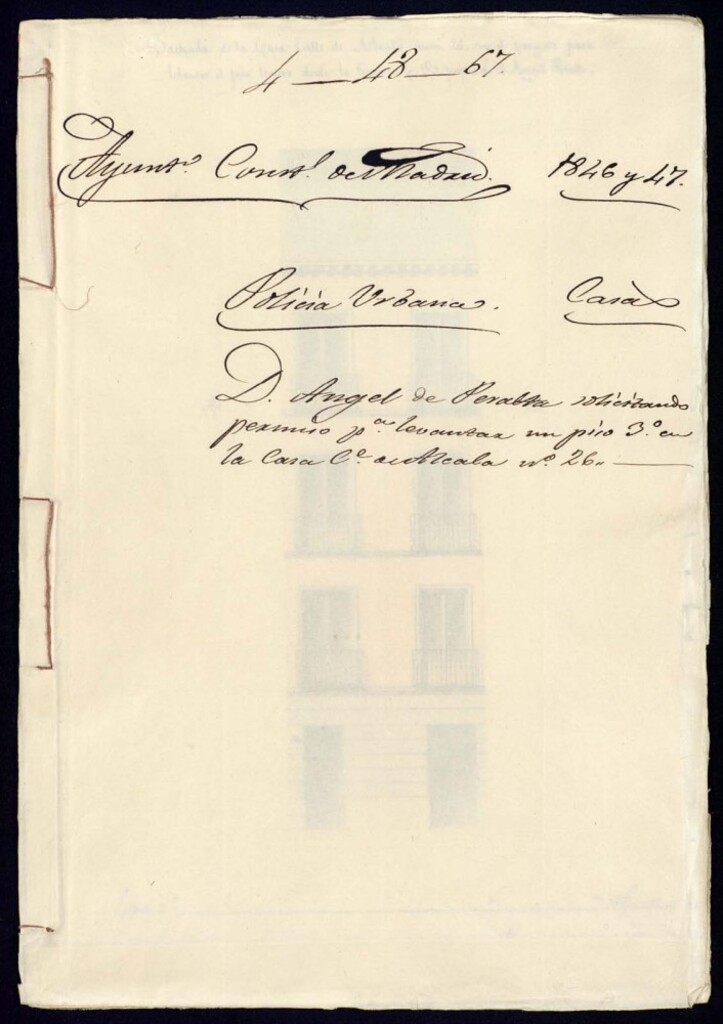 4 — 48 — 67.
Ayuntº. Constl. de Madrid. 1846 y 47.
Policia Urbana. Casas
D. Angel de Peralta solicitando
permiso pª. levantar un piso 3º en
la Casa Cª. de Alcala nº. 26. —